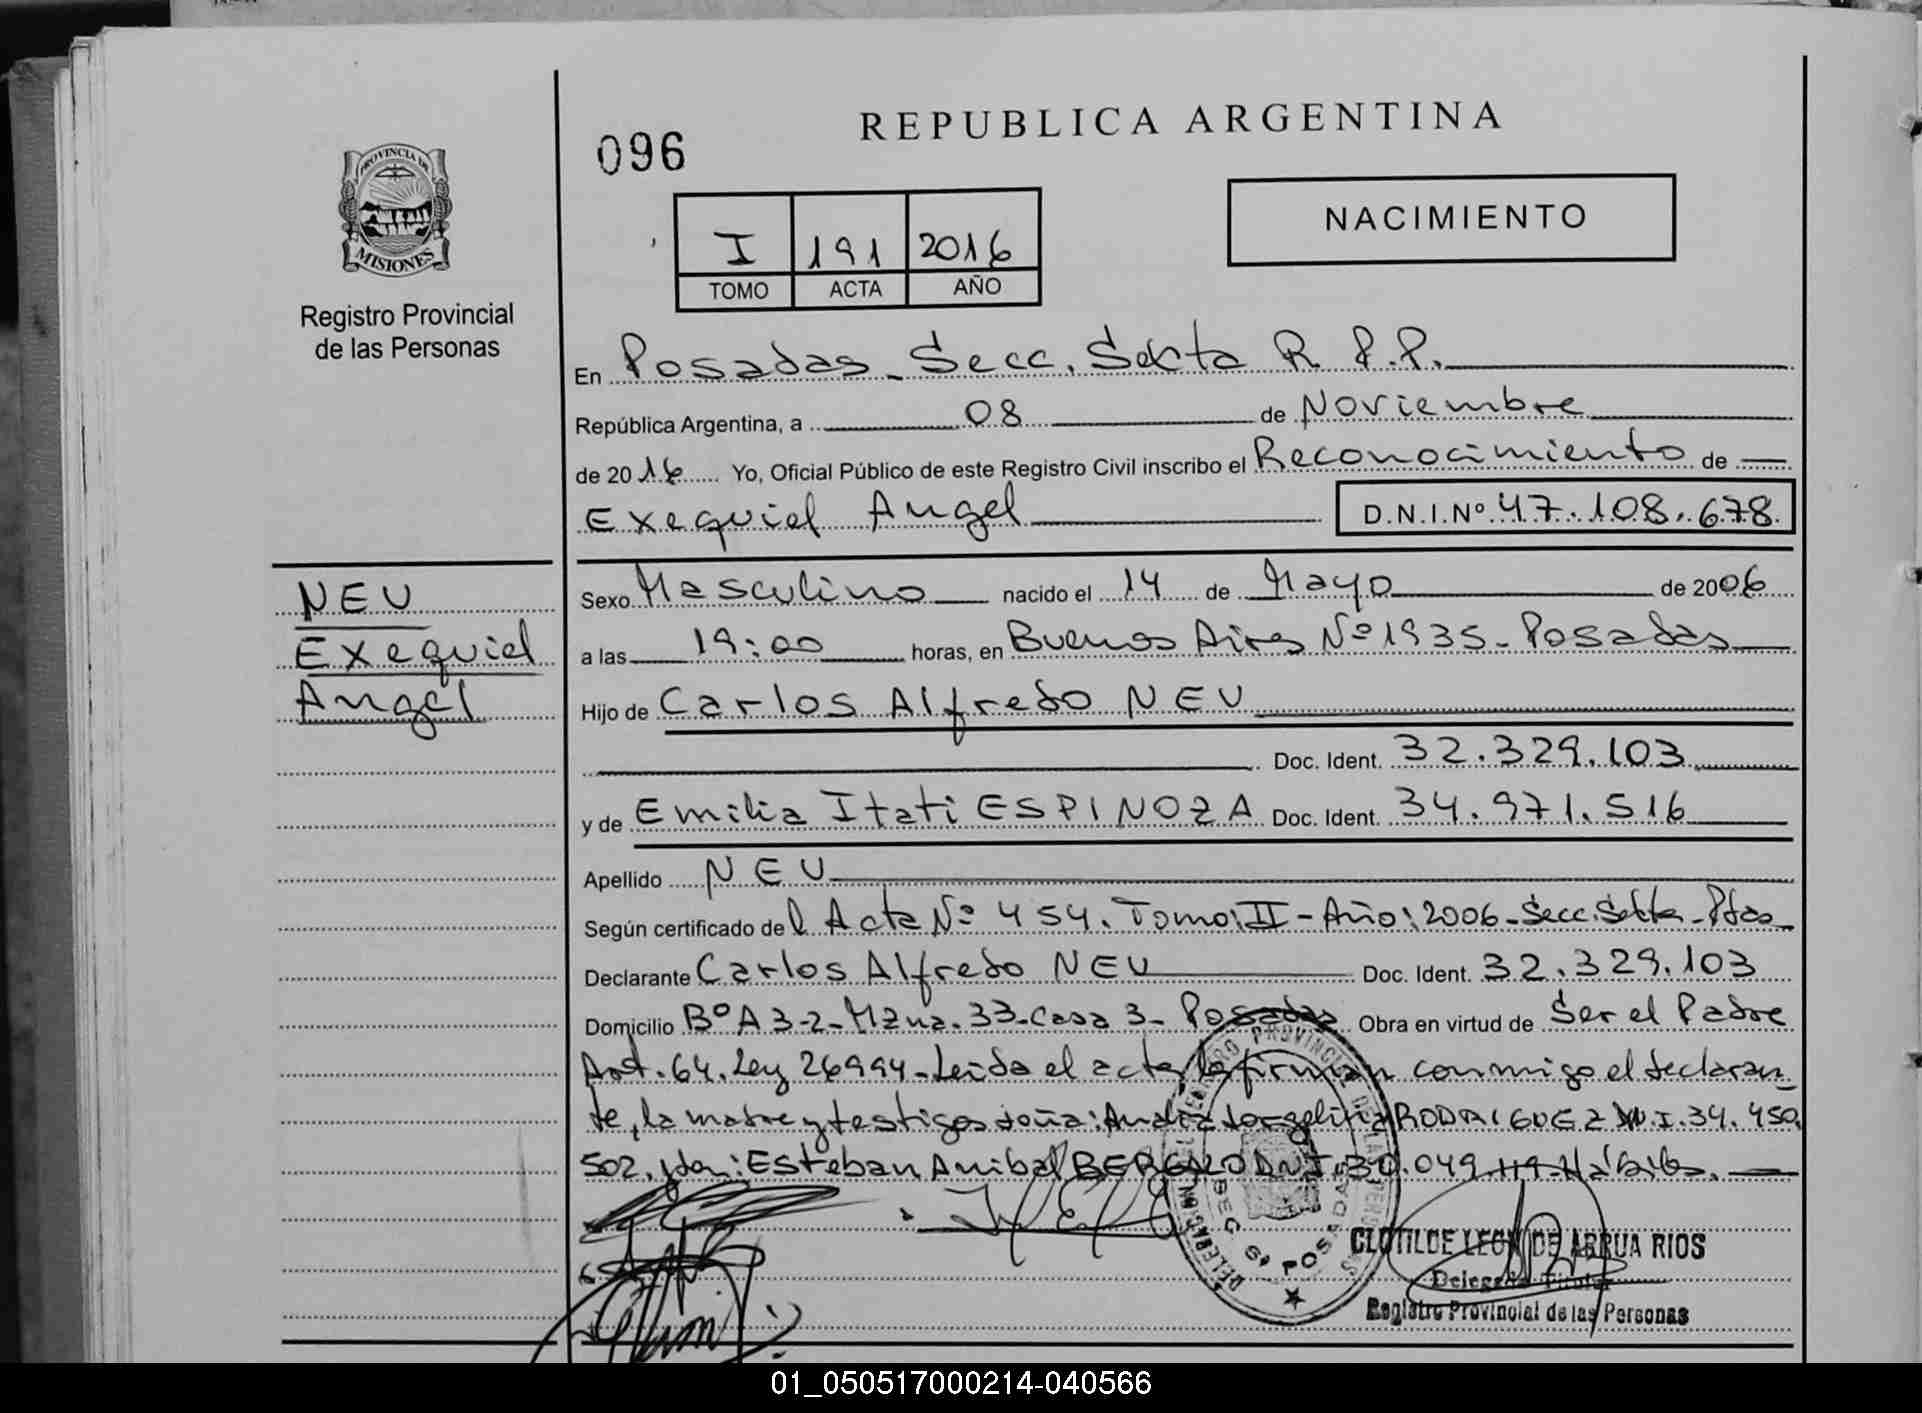 REPUBLICA ARGENTINA
096
PROVINCIA DE
MISIONES
Registro Provincial
de las Personas
I 191 2016
TOMO ACTA AÑO
NACIMIENTO
En Posadas - Secc. Sexta R. P. P.
República Argentina, a 08 de Noviembre
de 2016 Yo, Oficial Público de este Registro Civil inscribo el Reconocimiento de
Exequiel Angel D.N.I.Nº 47.108.678
NEU
Exequiel
Angel
Sexo Masculino nacido el 14 de Mayo de 2006
a las 19:00 horas, en Buenos Aires Nº 1935 - Posadas
Hijo de Carlos Alfredo NEU
Doc. Ident. 32.329.103
y de Emilia Itati ESPINOZA Doc. Ident. 34.971.516
Apellido NEU
Según certificado del Acta Nº 454. Tomo: II - Año: 2006 - Secc. Sexta - Pdas
Declarante Carlos Alfredo NEU Doc. Ident. 32.329.103
Domicilio Bº A 3-2 - Mzna. 33 - Casa 3 - Posadas Obra en virtud de Ser el Padre
Art. 64. Ley 26994 - Leida el acta, la firman conmigo el declaran_
te, la madre y testigos doña: Analia Jorgelina RODRIGUEZ D.N.I. 34.450.
502. y don: Esteban Anibal D.N.I. 30.049.119 - Hábiles.
CLOTILDE LEON DE ARRUA RIOS
Delegada Titular
Registro Provincial de las Personas
SEC 6ª POSADAS
01_050517000214-040566